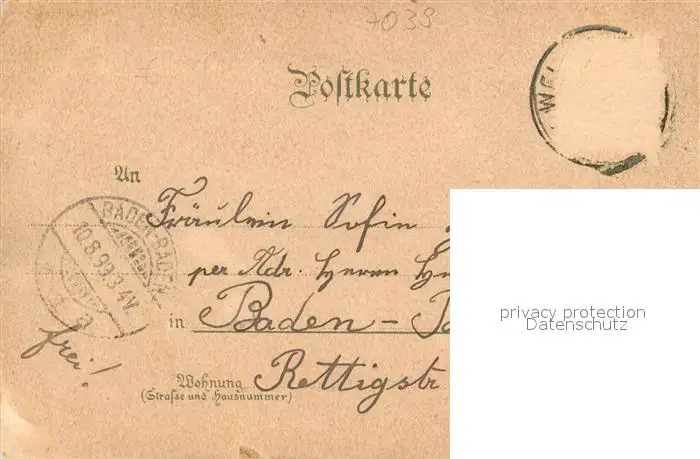 7039
Postkarte
An
Fräulein Sofie
BADEN-BADEN
10.8.99.3-4N.
per Adr. Herrn
in Baden-
frei!
Wohnung
(Straße und Hausnummer)
Rettigstr
privacy protection
Datenschutz